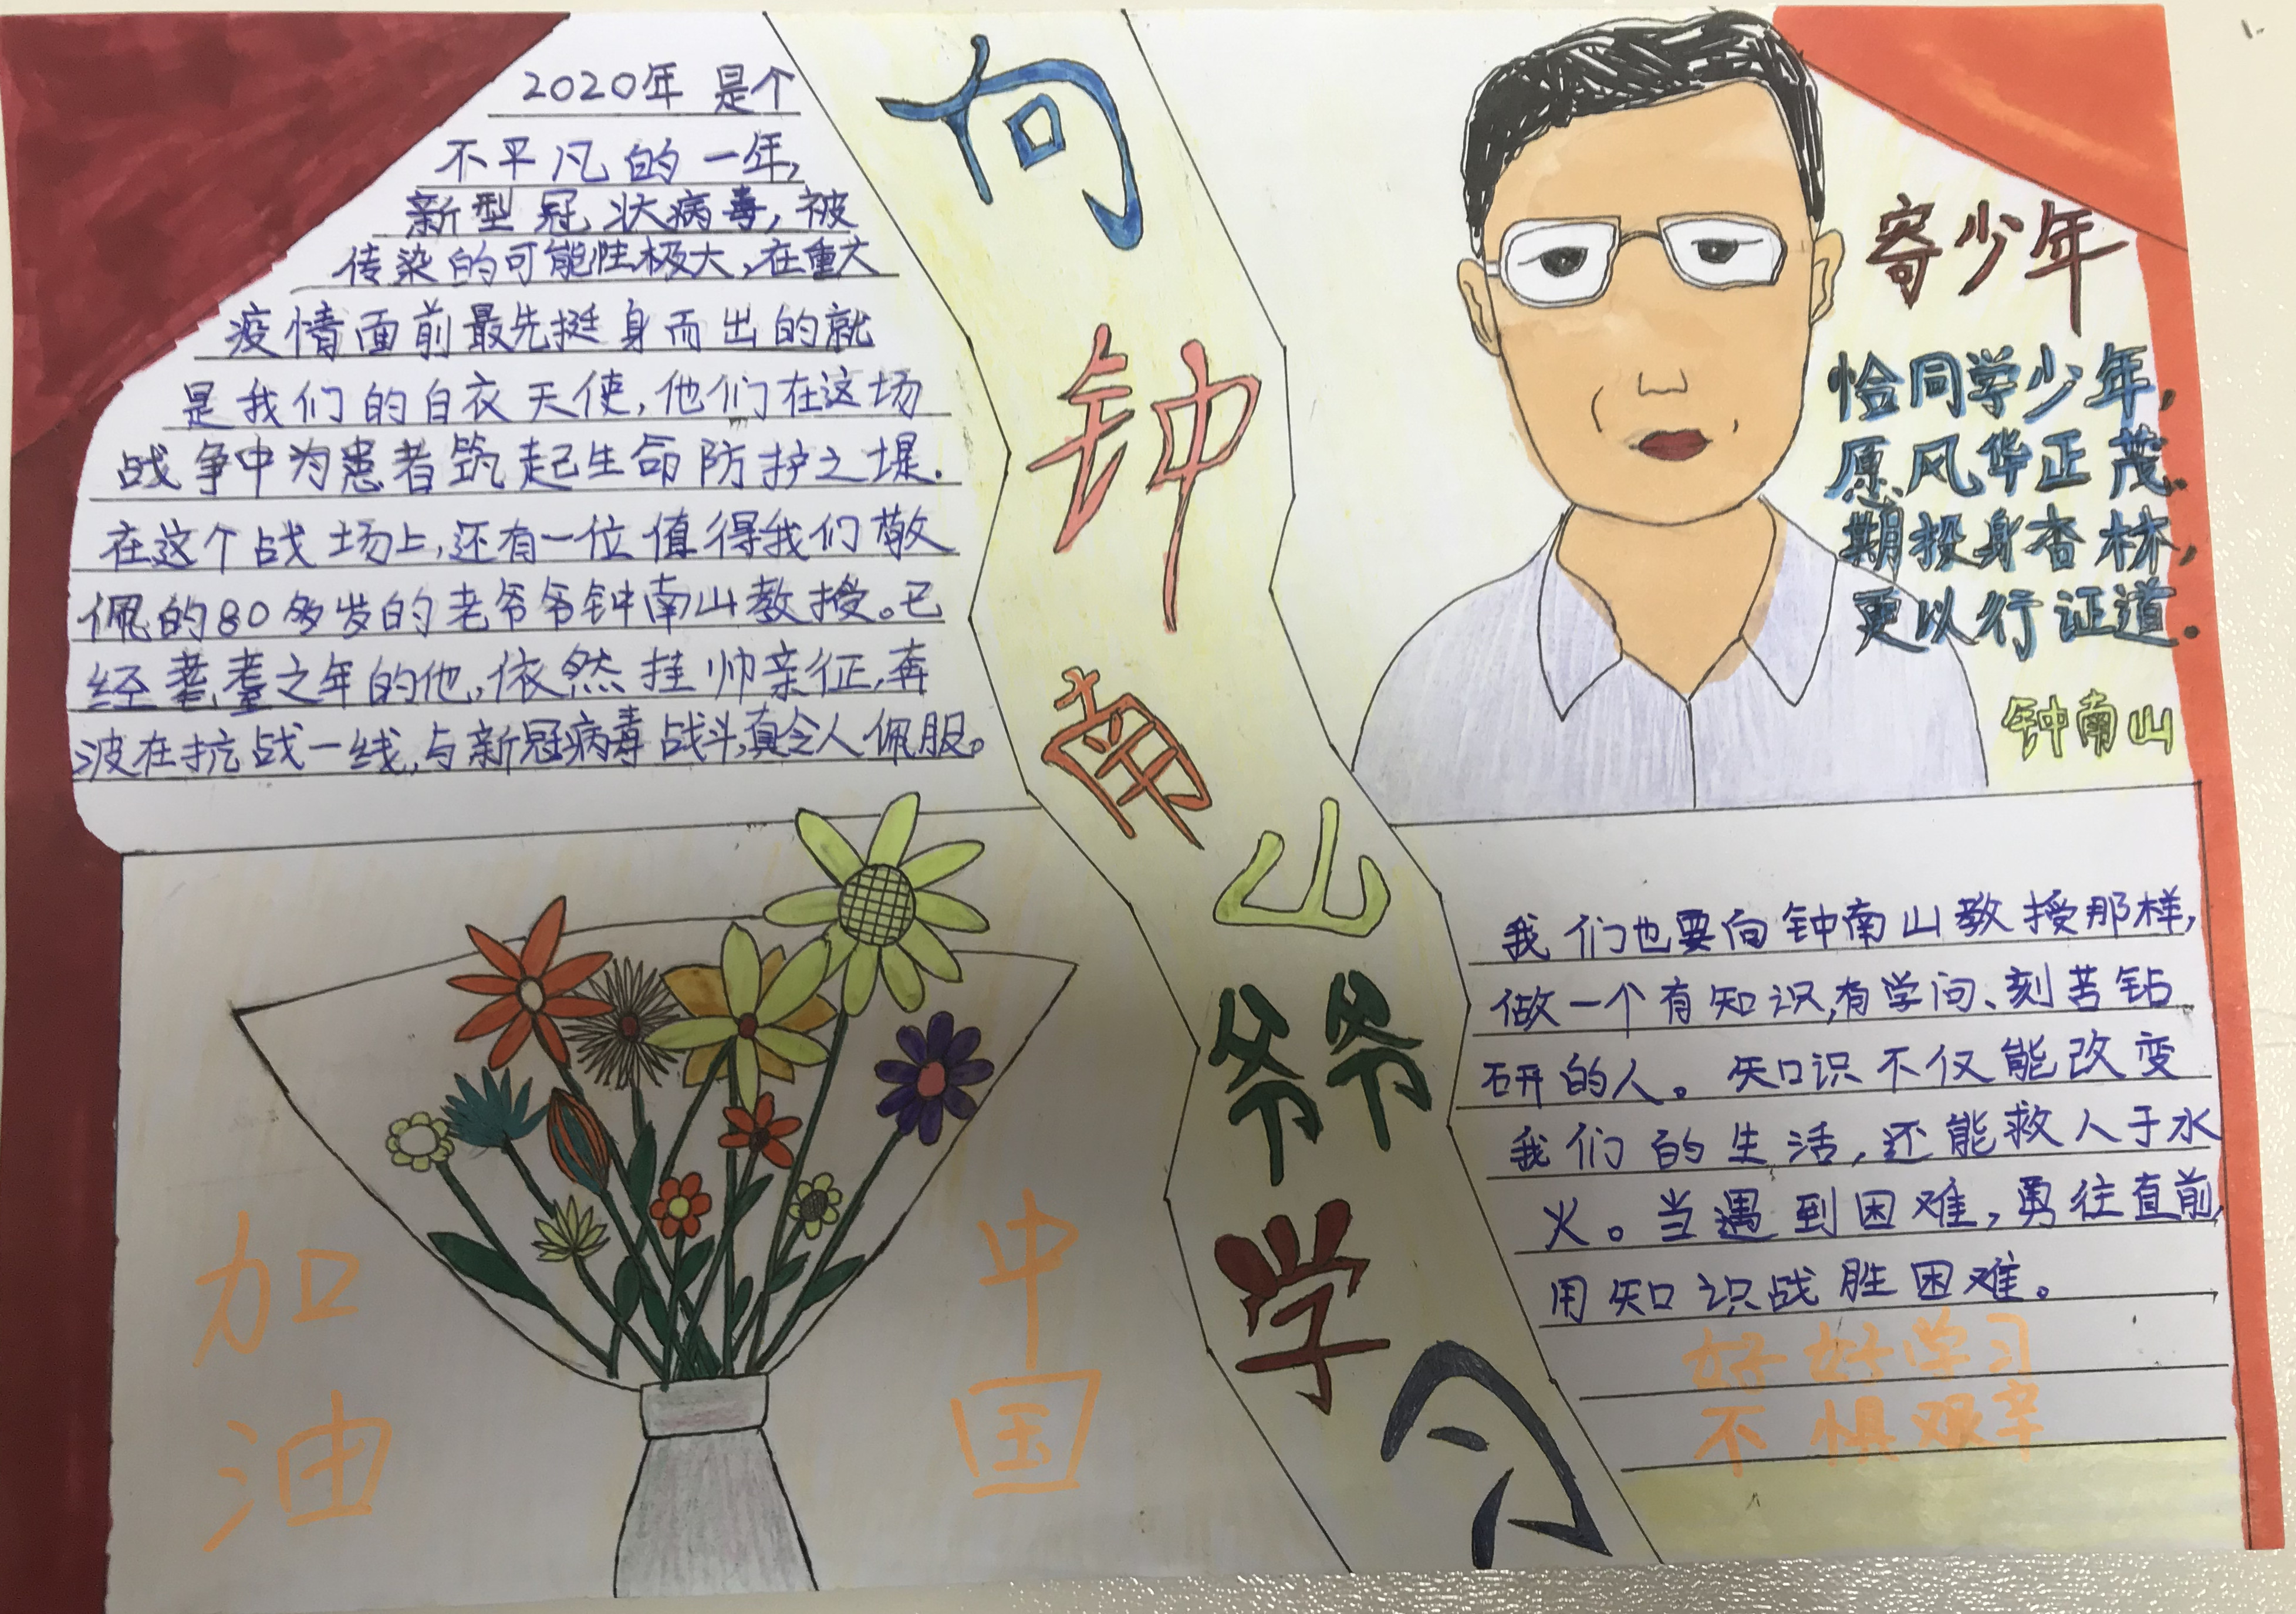 2020年 是个
不平凡的一年,
新型冠状病毒,被
传染的可能性极大,在重大
疫情面前最先挺身而出的就
是我们的白衣天使,他们在这场
战争中为患者筑起生命防护之堤.
在这个战场上,还有一位值得我们敬
佩的80多岁的老爷爷钟南山教授。已
经耄耋之年的他,依然挂帅亲征,奔
波在抗战一线,与新冠病毒战斗,真令人佩服。
向钟南山爷爷学习
寄少年
恰同学少年,
愿风华正茂.
期投身杏林,
更以行证道.
钟南山
加油
中国
我们也要向钟南山教授那样,
做一个有知识,有学问、刻苦钻
研的人。知识不仅能改变
我们的生活,还能救人于水
火。当遇到困难,勇往直前,
用知识战胜困难。
好好学习
不惧艰辛